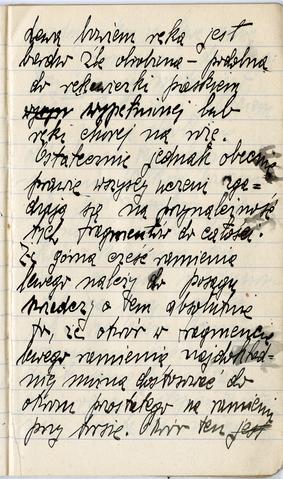 lewą bowiem ręka jest
bardzo źle obrobiona – podobna
do rękawiczki piaskiem
wypełnionej lub
ręki chorej na nię.
Ostatecznie jednak obecnie
prawie wszyscy uczeni zga-
dzają się na przynależność
tych fragmentów do całości.
Że górna część ramienia
lewego należy do posągu
świadczy o tem absolutnie
to, że otwór w fragmencie
lewego ramienia najdokład-
niej można dostosować do
otworu prostego na ramieniu
przy torsie. Otwór ten jest